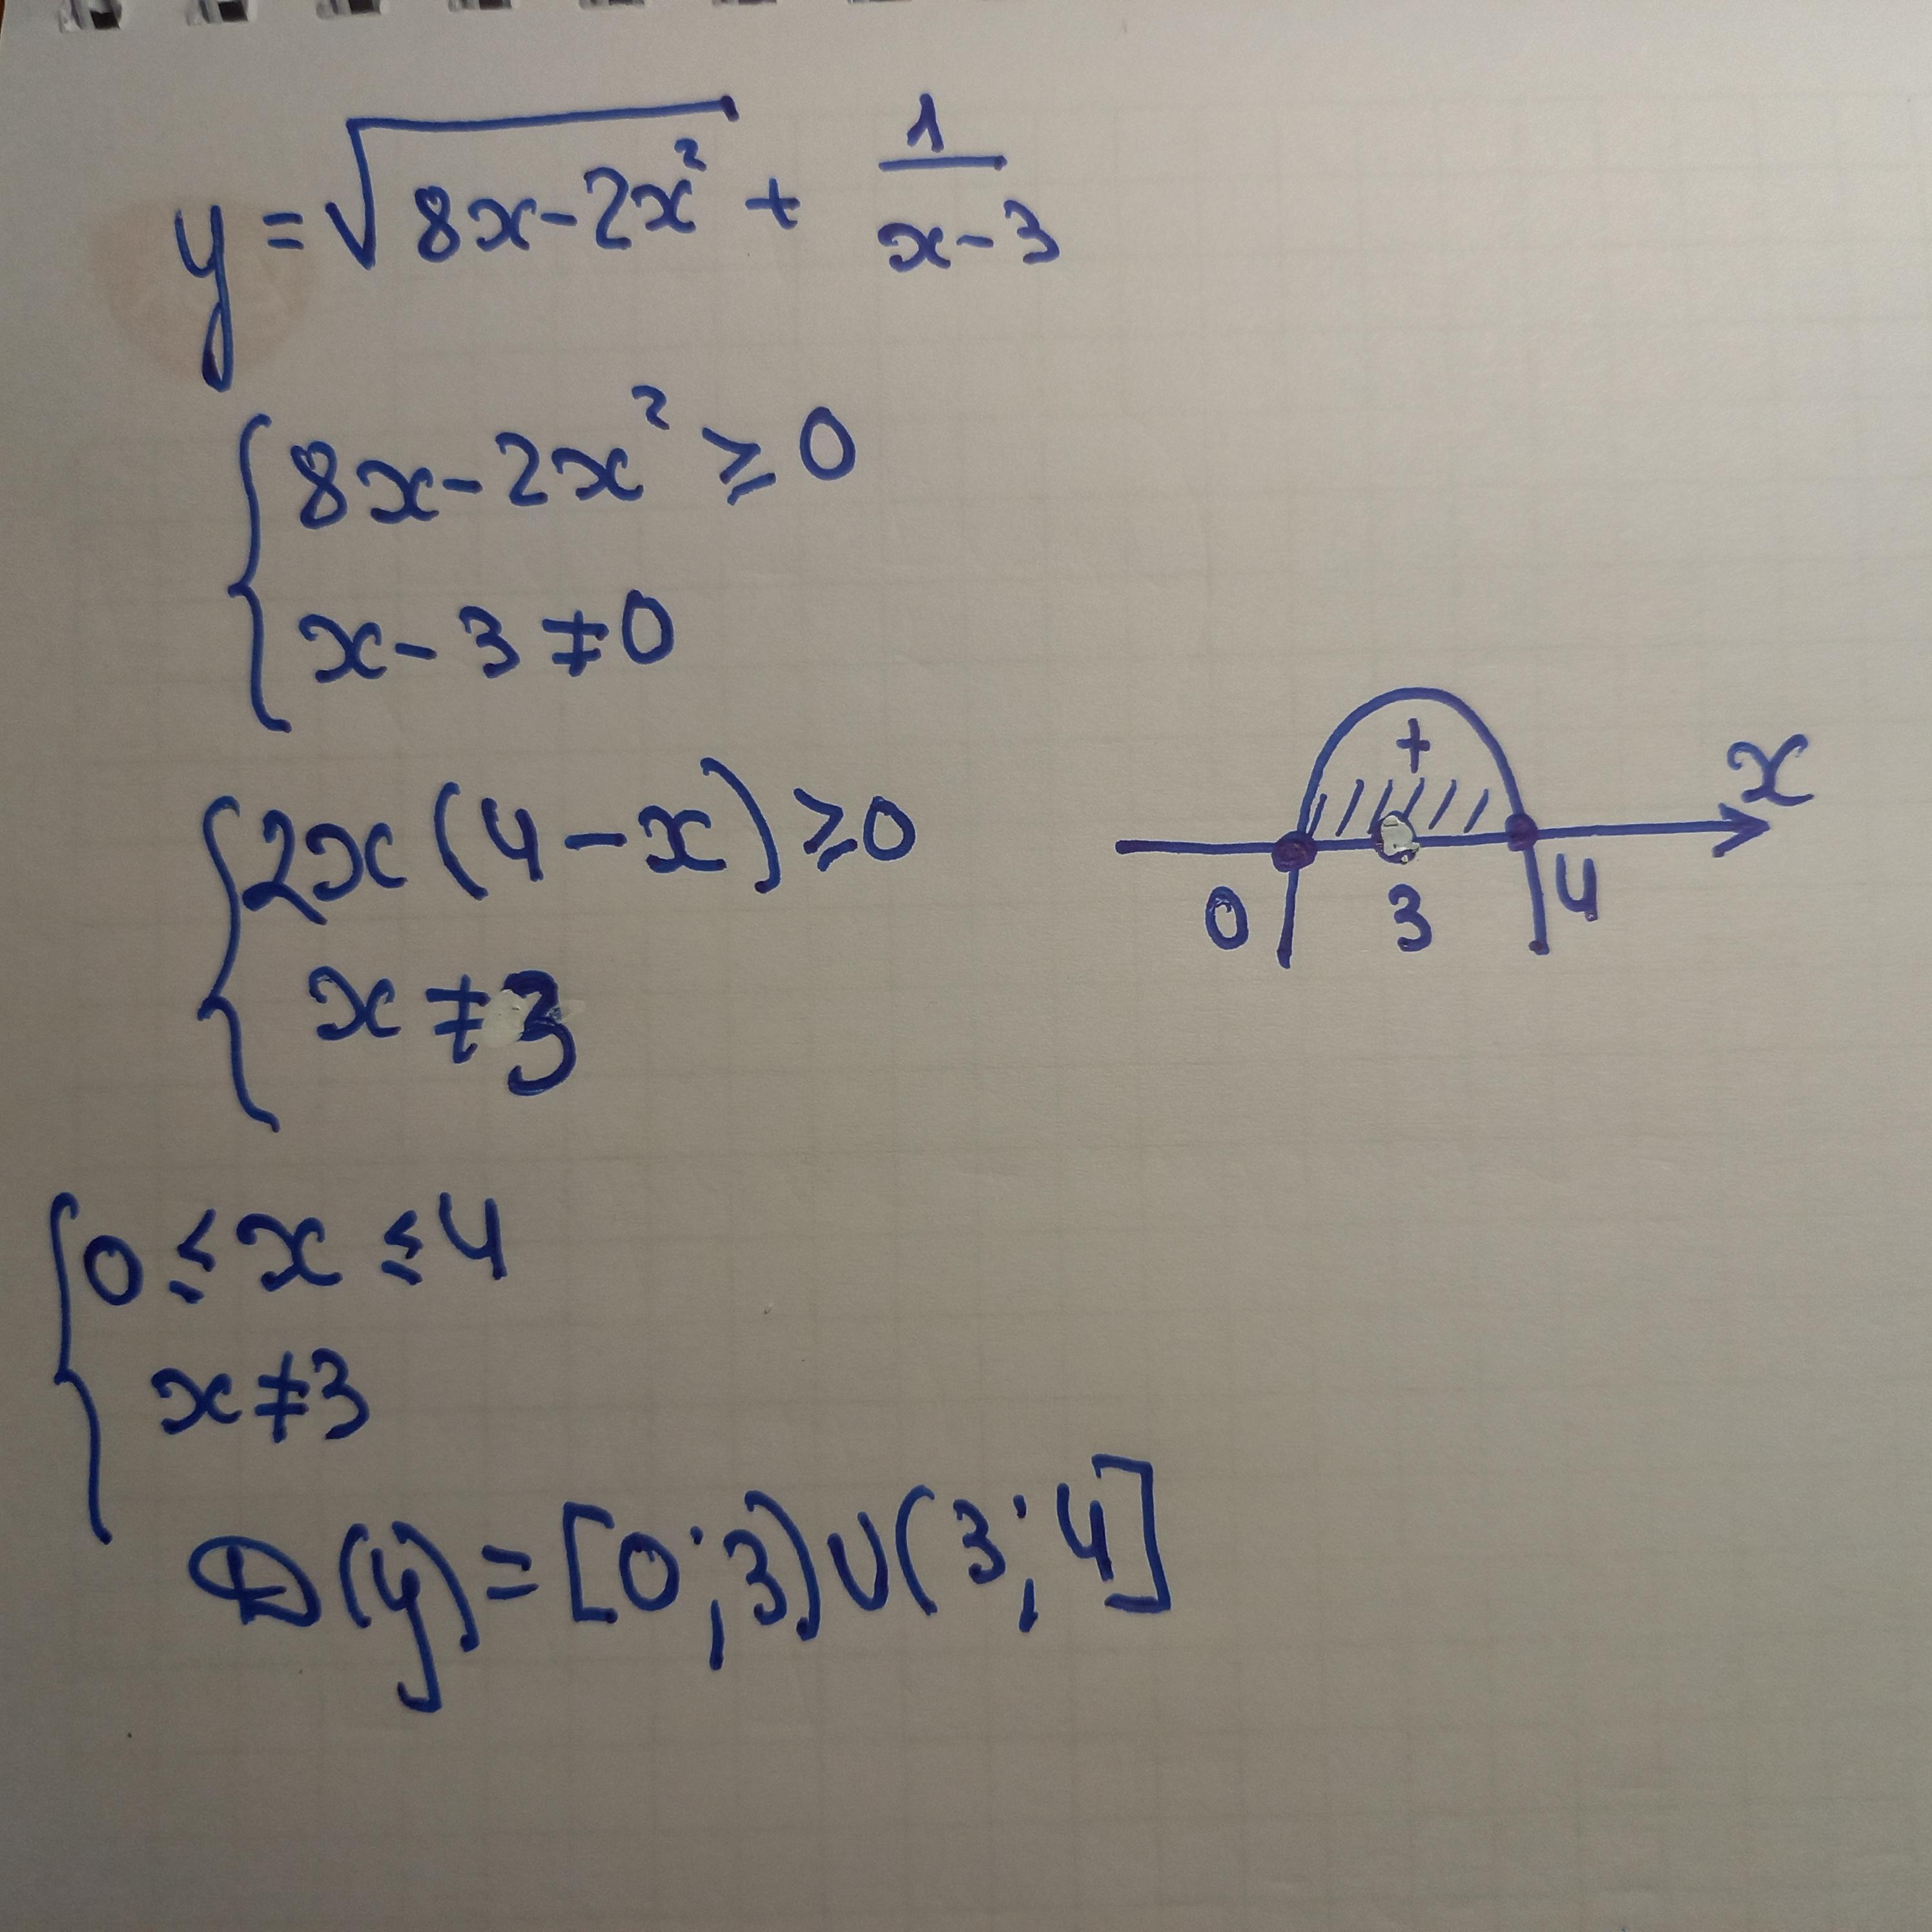 y = √(8x-2x²) + 1/(x-3)
{ 8x-2x² ≥ 0
x-3 ≠ 0
{ 2x(4-x) ≥ 0
x ≠ 3
+
x
0 3 4
{ 0 ≤ x ≤ 4
x ≠ 3
D(y) = [0; 3) ∪ (3; 4]